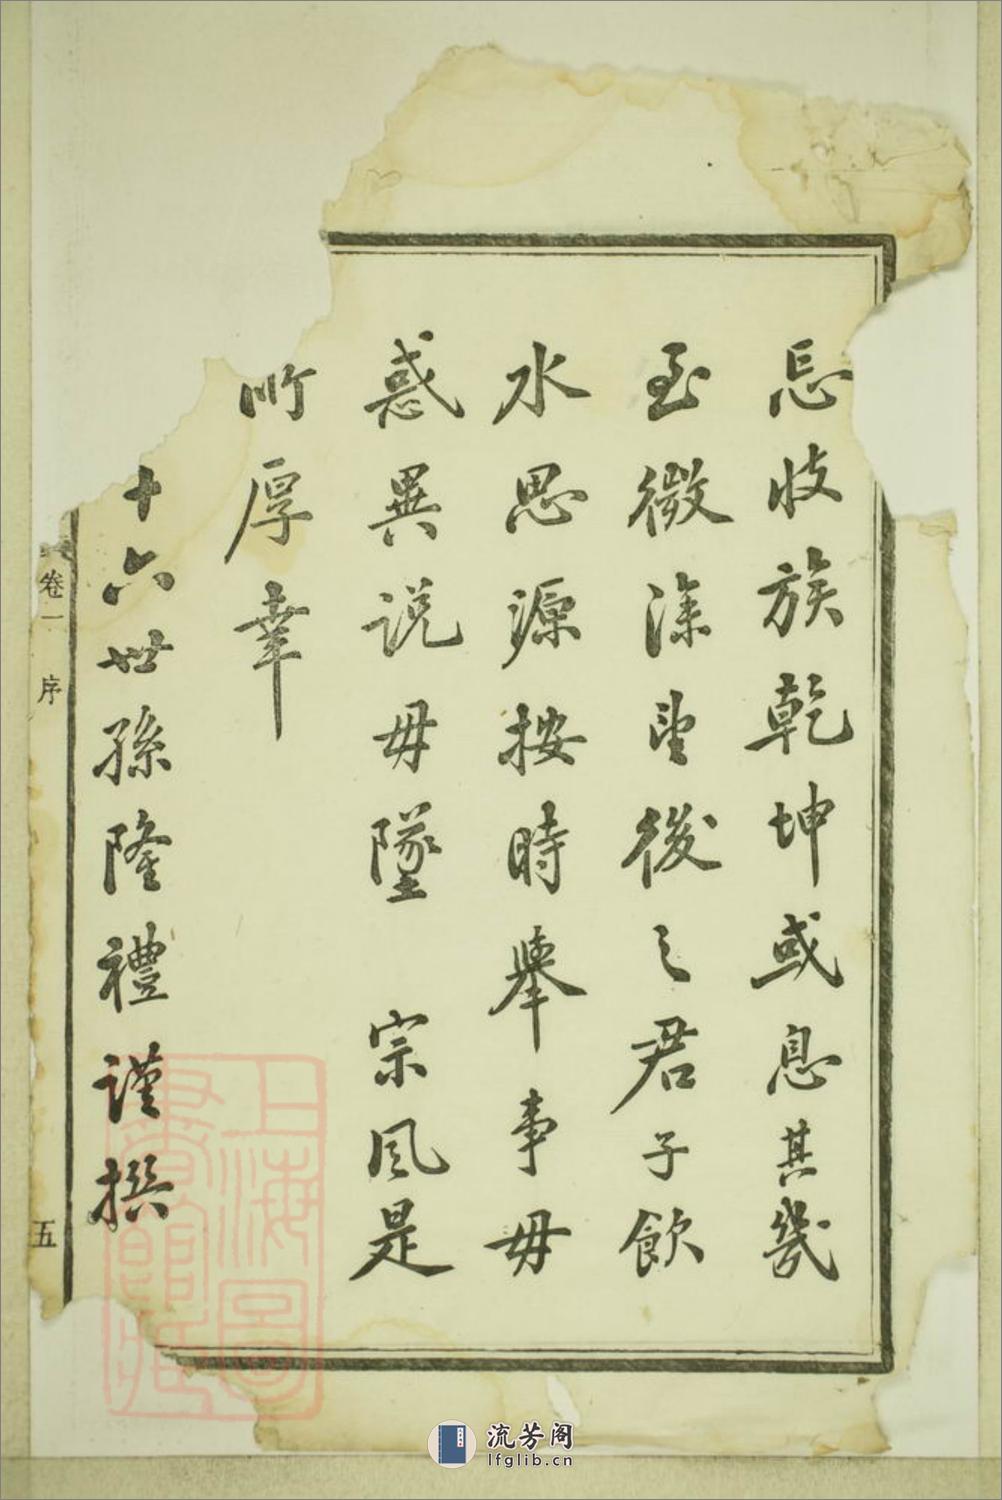 忘收族乾坤或息其幾
至微深望後之君子飲
水思源按時舉事毋
惑異说毋墜　宗風是
所厚幸
十六世孫隆禮謹撰
卷一　序
五
上海圖書館藏
流芳阁
lfglib.cn